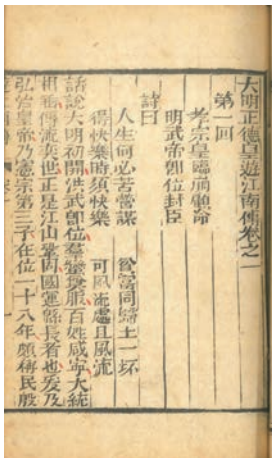 大明正德皇遊江南傳卷之一
第一回
孝宗皇臨崩顧命
明武帝卽位封臣
詩曰
人生何必苦營謀　終當同歸土一坏
得快樂時須快樂　可風流處且風流
話說大明初開洪武卽位羣蠻賓服百姓咸寧大統
相承傳流奕世正是江山鞏固國運緜長者也爰及
弘治皇帝乃憲宗第三子在位一十八年頗得民殷